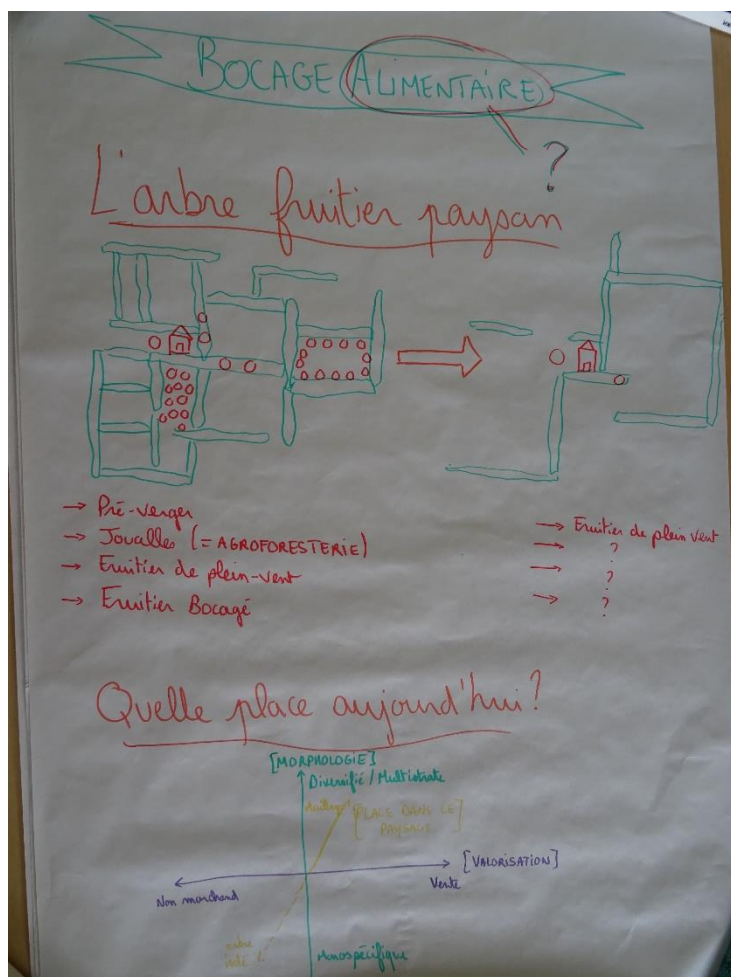 BOCAGE ALIMENTAIRE
?
L'arbre fruitier paysan
→ Pré-verger
→ Joualles (= AGROFORESTERIE)
→ Fruitier de plein-vent
→ Fruitier Bocagé
→ Fruitier de plein vent
→ ?
→ ?
→ ?
Quelle place aujourd'hui?
[MORPHOLOGIE]
Diversifié / Multistrate
[PLACE DANS LE
PAYSAGE]
[VALORISATION]
Non marchand
Vente
arbre
Monospécifique